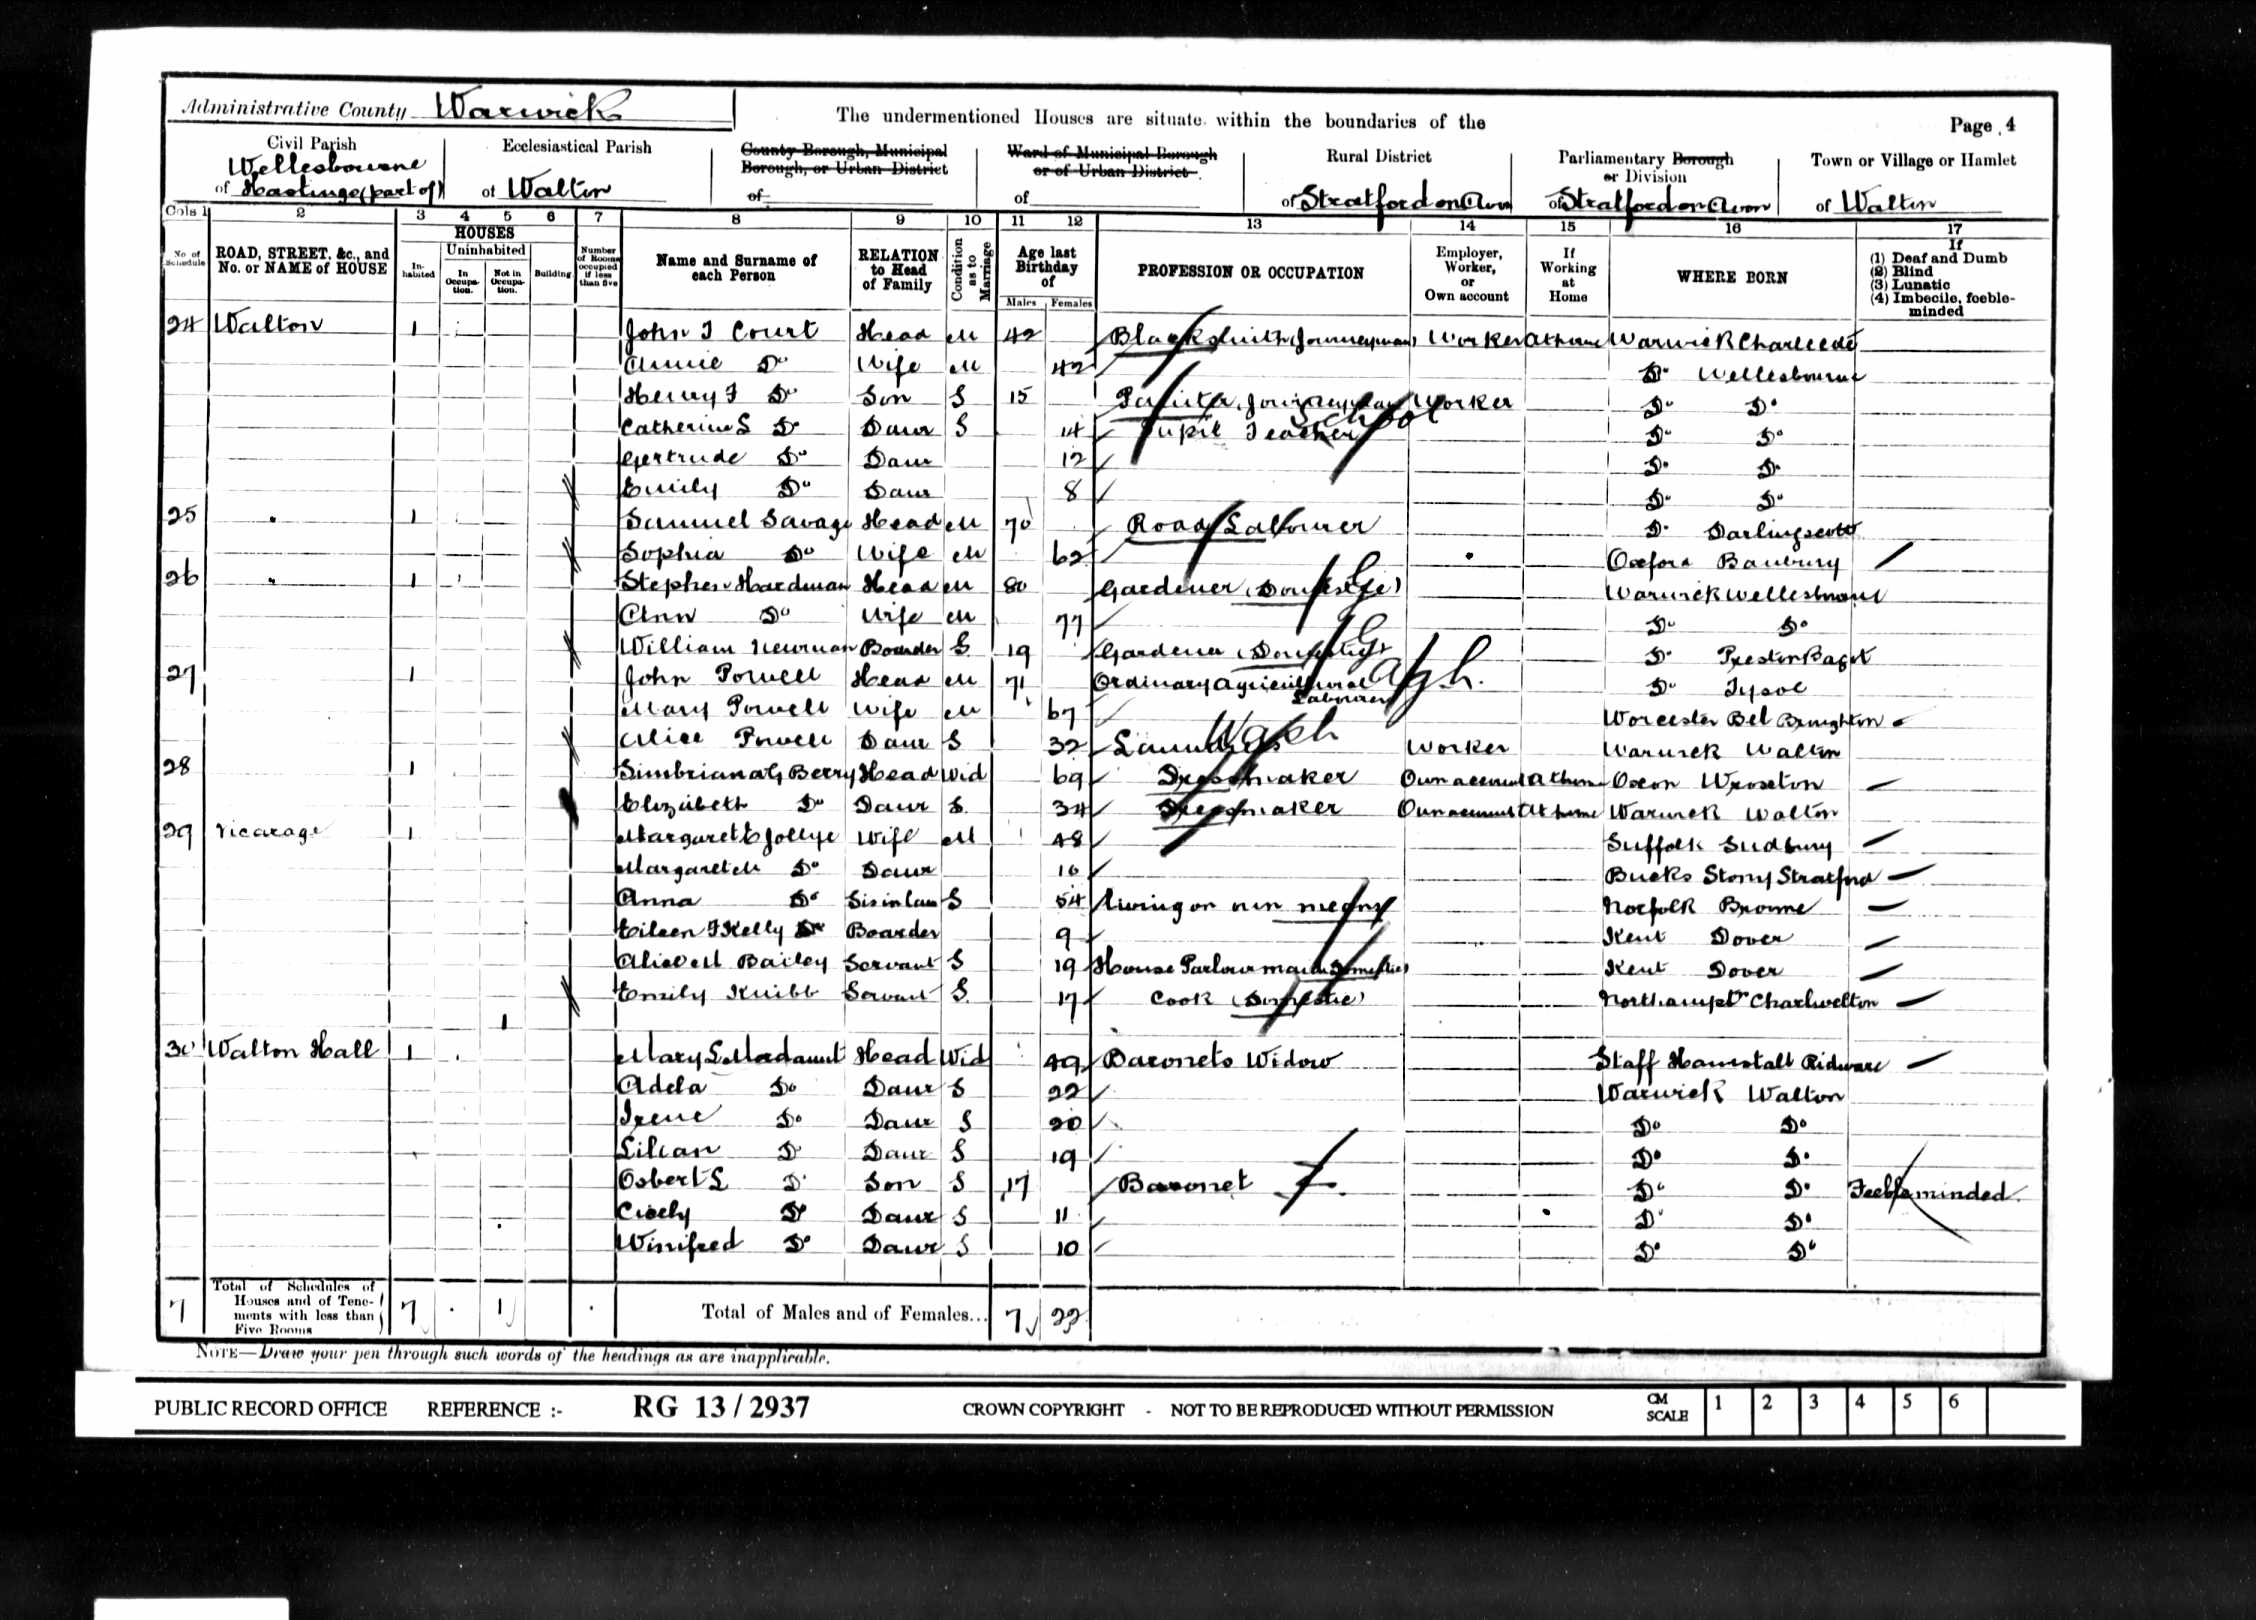 Administrative County Warwick
The undermentioned Houses are situate within the boundaries of the
Page 4
Civil Parish
of Wellesbourne Hastings (part of)
Ecclesiastical Parish
of Walton
County Borough, Municipal Borough, or Urban District
of
Ward of Municipal Borough or of Urban District
of
Rural District
of Stratford on Avon
Parliamentary Borough or Division
of Stratford on Avon
Town or Village or Hamlet
of Walton
Cols 1 2 3 4 5 6 7 8 9 10 11 12 13 14 15 16 17
No of Schedule
ROAD, STREET, &c., and No. or NAME of HOUSE
HOUSES
In-habited
Uninhabited
In Occupa-tion.
Not in Occupa-tion.
Building
Number of Rooms occupied if less than five
Name and Surname of each Person
RELATION to Head of Family
Condition as to Marriage
Age last Birthday of
Males Females
PROFESSION OR OCCUPATION
Employer, Worker, or Own account
If Working at Home
WHERE BORN
If
(1) Deaf and Dumb
(2) Blind
(3) Lunatic
(4) Imbecile, feeble-minded
24 Walton 1 John T Court Head M 42 Blacksmith (Journeyman) Worker At home Warwick Charlecote
Annie Do Wife M 42 Do Wellesbourne
Henry J Do Son S 15 Painter, Journeyman Worker Do Do
Catherine S Do Daur S 14 Pupil Teacher School Do Do
Gertrude Do Daur 12 Do Do
Emily Do Daur 8 Do Do
25 " 1 Samuel Savage Head M 70 Road Labourer Do Darlingscott
Sophia Do Wife M 62 Oxford Banbury
26 " 1 Stephen Hardman Head M 80 Gardener (Domestic) G Warwick Wellesbourne
Ann Do Wife M 77 Do Do
William Newman Boarder S 19 Gardener (Domestic) G Do Preston Bagot
27 1 John Powell Head M 71 Ordinary Agricultural Labourer Do Tysoe
Mary Powell Wife M 67 Worcester Bel Broughton
Alice Powell Daur S 32 Laundress Wash Worker Warwick Walton
28 1 Berry Head Wid 69 Dressmaker Own account At home Oxon Wroxton
Elizabeth Do Daur S 34 Dressmaker Own account At home Warwick Walton
29 Vicarage 1 Margaret E Jollye Wife M 48 Suffolk Sudbury
Margaret M Do Daur 16 Bucks Stony Stratford
Anna Do Sis in law S 54 Living on own means Norfolk Broome
Eileen J Kelly Do Boarder 9 Kent Dover
Alice M Bailey Servant S 19 House Parlour maid (Domestic) Kent Dover
Emily Knibb Servant S 17 Cook (Domestic) Northampton Charlwelton
1
30 Walton Hall 1 Mary L Mordaunt Head Wid 49 Baronets Widow Staff Hamstall Ridware
Adela Do Daur S 22 Warwick Walton
Irene Do Daur S 20 Do Do
Lilian Do Daur S 19 Do Do
Osbert L Do Son S 17 Baronet Do Do Feeble minded.
Cicely Do Daur S 11 Do Do
Winifred Do Daur S 10 Do Do
7 Total of Schedules of Houses and of Tene-ments with less than Five Rooms 7 1 Total of Males and of Females... 7 22
NOTE—Draw your pen through such words of the headings as are inapplicable.
PUBLIC RECORD OFFICE REFERENCE :- RG 13 / 2937 CROWN COPYRIGHT - NOT TO BE REPRODUCED WITHOUT PERMISSION CM SCALE 1 2 3 4 5 6